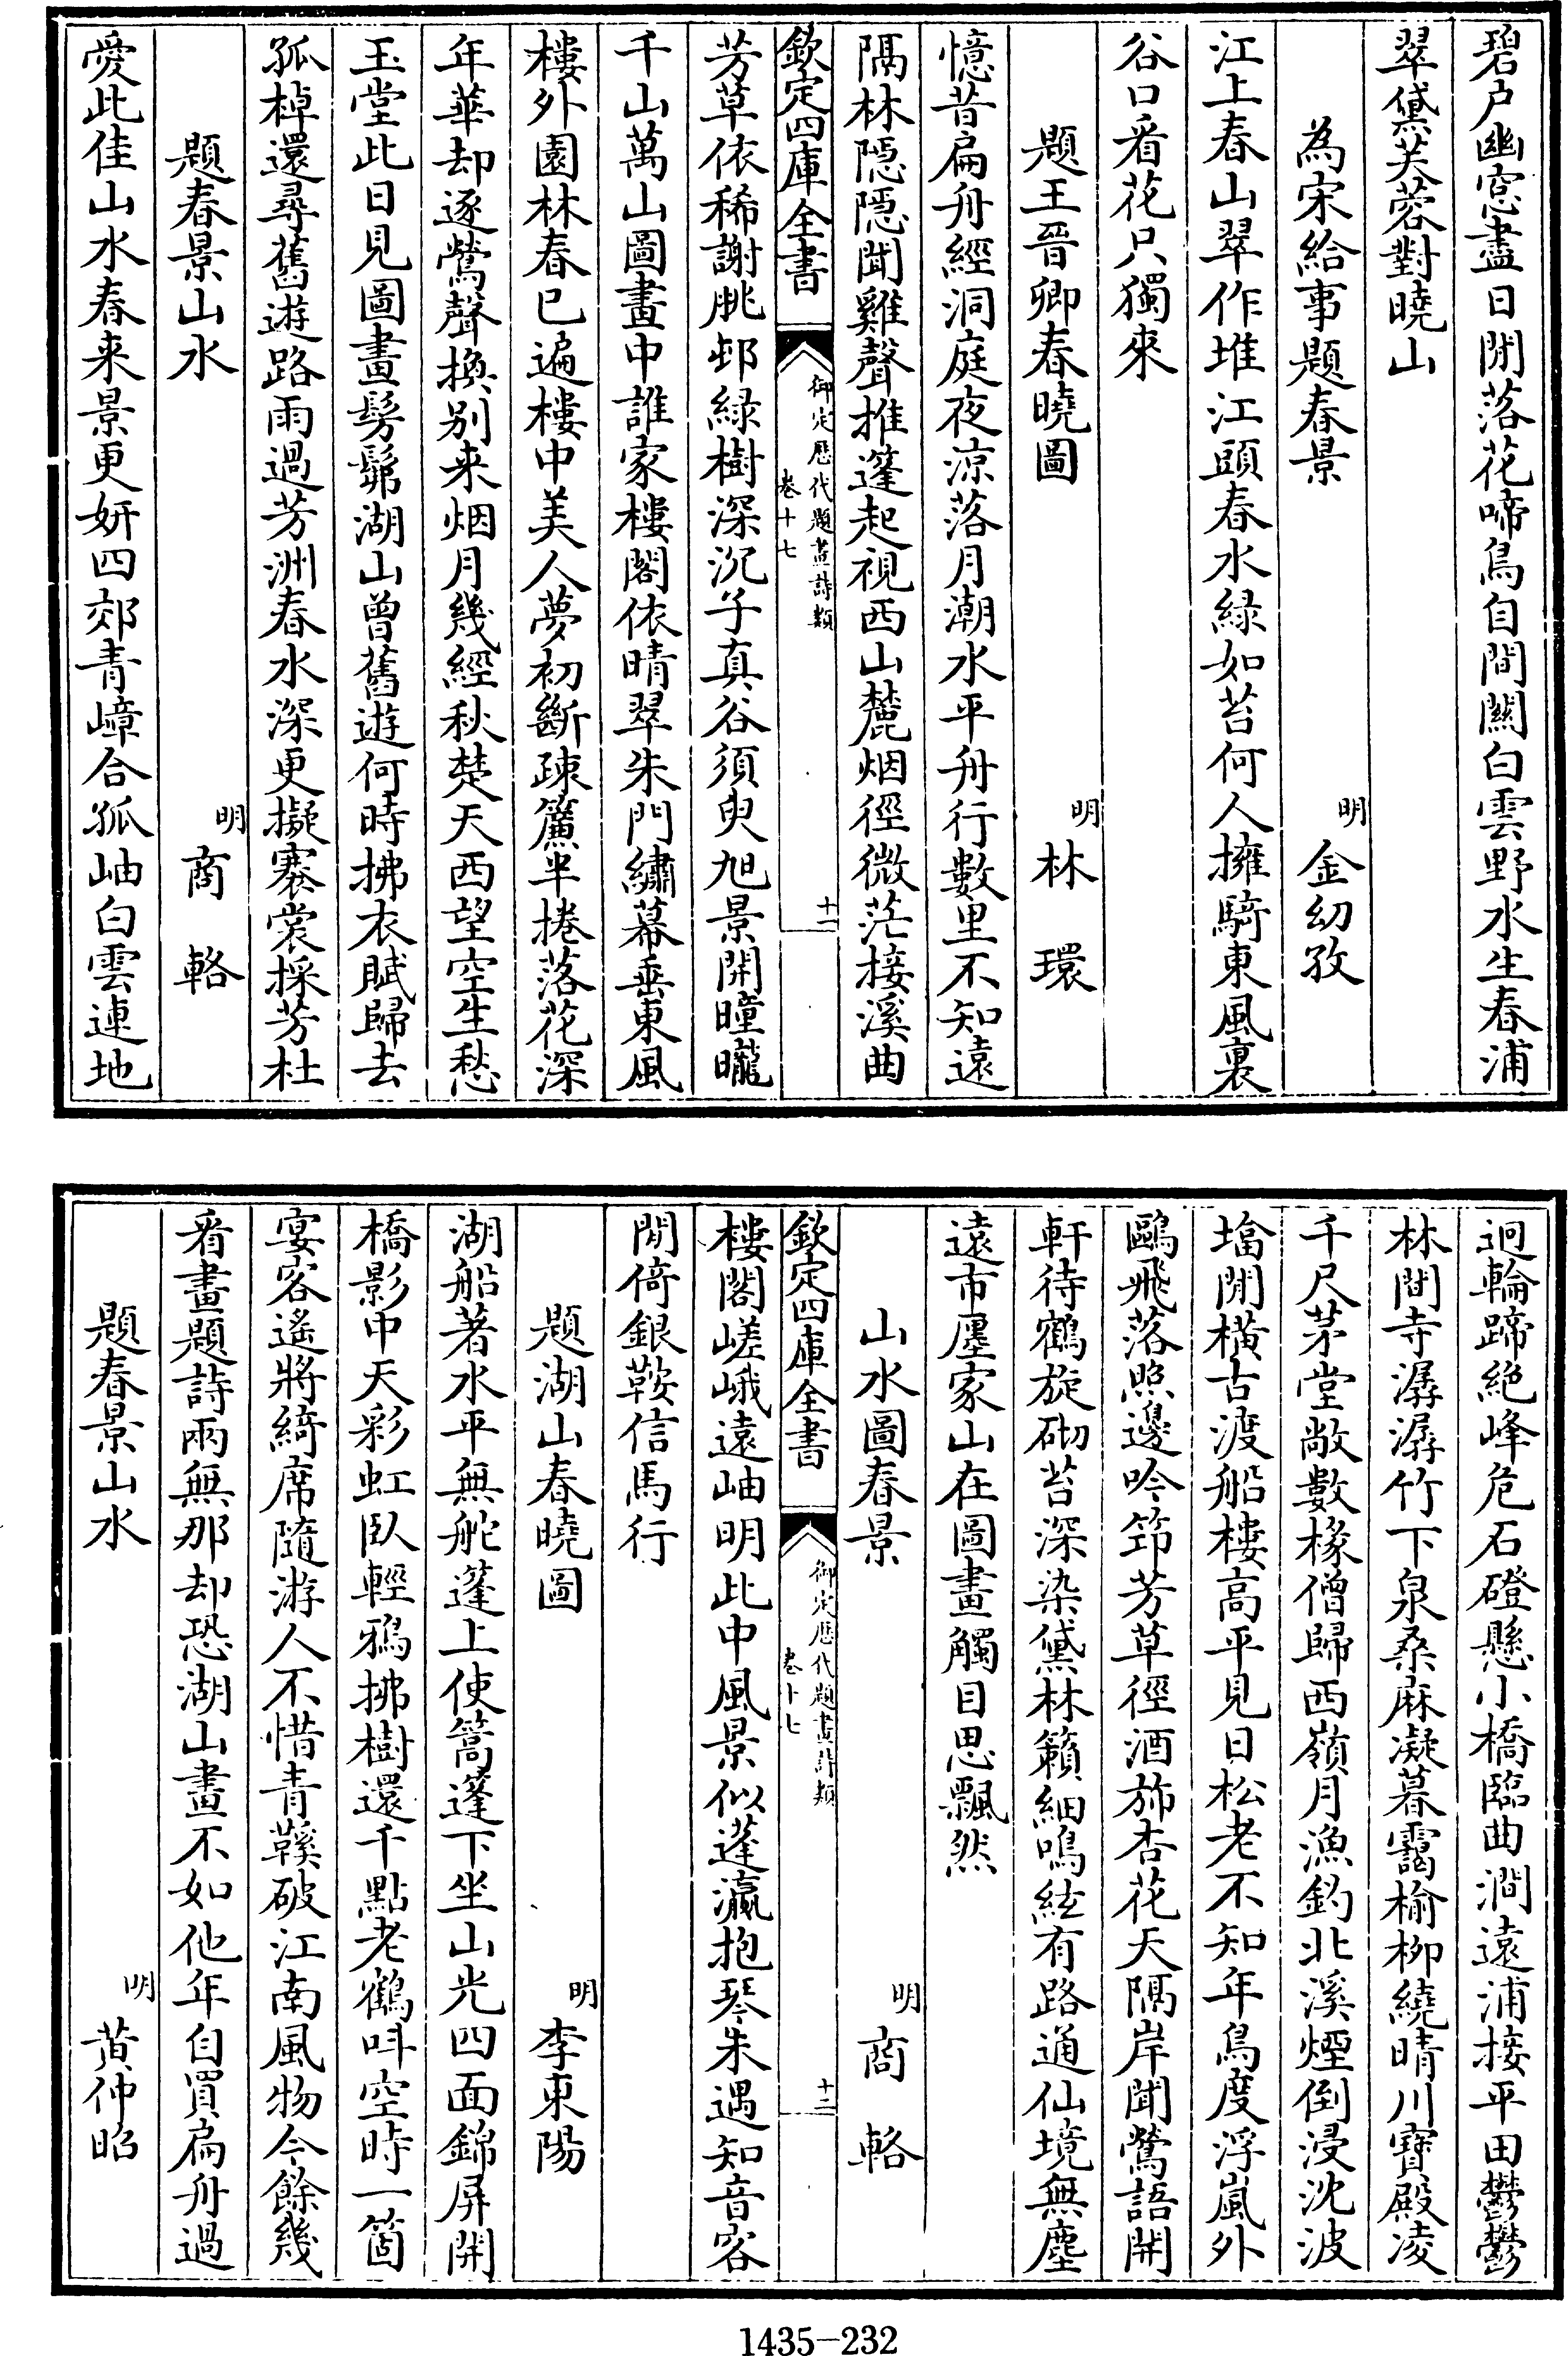 碧户幽窓盡日閒落花啼鳥自間關白雲野水生春浦
翠黛芙蓉對曉山
為宋給事題春景
明金幼孜
江上春山翠作堆江頭春水緑如苔何人擁騎東風裏
谷口看花只獨來
題王晉卿春曉圖
明林環
憶昔扁舟經洞庭夜涼落月潮水平舟行數里不知遠
隔林隱隱聞雞聲推篷起視西山麓烟徑微茫接溪曲
欽定四庫全書
御定歷代題畫詩類
卷十七
十一
芳草依稀謝朓邨緑樹深沉子真谷須臾旭景開曈曨
千山萬山圖畫中誰家樓閣依晴翠朱門繡幕垂東風
樓外園林春已遍樓中美人夢初斷疎簾半捲落花深
年華却逐鶯聲換别来烟月幾經秋楚天西望空生愁
玉堂此日見圖畫髣髴湖山曾舊遊何時拂衣賦歸去
孤棹還尋舊遊路雨過芳洲春水深更擬褰裳採芳杜
題春景山水
明商輅
愛此佳山水春来景更妍四郊青嶂合孤岫白雲連地
迥輪蹄絶峰危石磴懸小橋臨曲澗遠浦接平田鬱鬱
林間寺潺潺竹下泉桑麻凝暮靄榆栁繞晴川寶殿凌
千尺茅堂敞數椽僧歸西嶺月漁釣北溪煙倒浸沈波
墖閒横古渡船樓高平見日松老不知年鳥度浮嵐外
鷗飛落照邊吟筇芳草徑酒斾杏花天隔岸聞鶯語開
軒待鶴旋砌苔深染黛林籟細鳴絃有路通仙境無塵
遠市廛家山在圖畫觸目思飄然
山水圖春景
明商輅
欽定四庫全書
御定歷代題畫詩類
卷十七
十二
樓閣嵯峨遠岫明此中風景似蓬瀛抱琴未遇知音客
閒倚銀鞍信馬行
題湖山春曉圖
明李東陽
湖船著水平無舵篷上使篙篷下坐山光四面錦屏開
橋影中天彩虹臥輕鴉拂樹還千點老鶴呌空時一箇
宴客遙將綺席隨游人不惜青鞵破江南風物今餘幾
看畫題詩兩無那却恐湖山畫不如他年自買扁舟過
題春景山水
明黄仲昭
1435-232